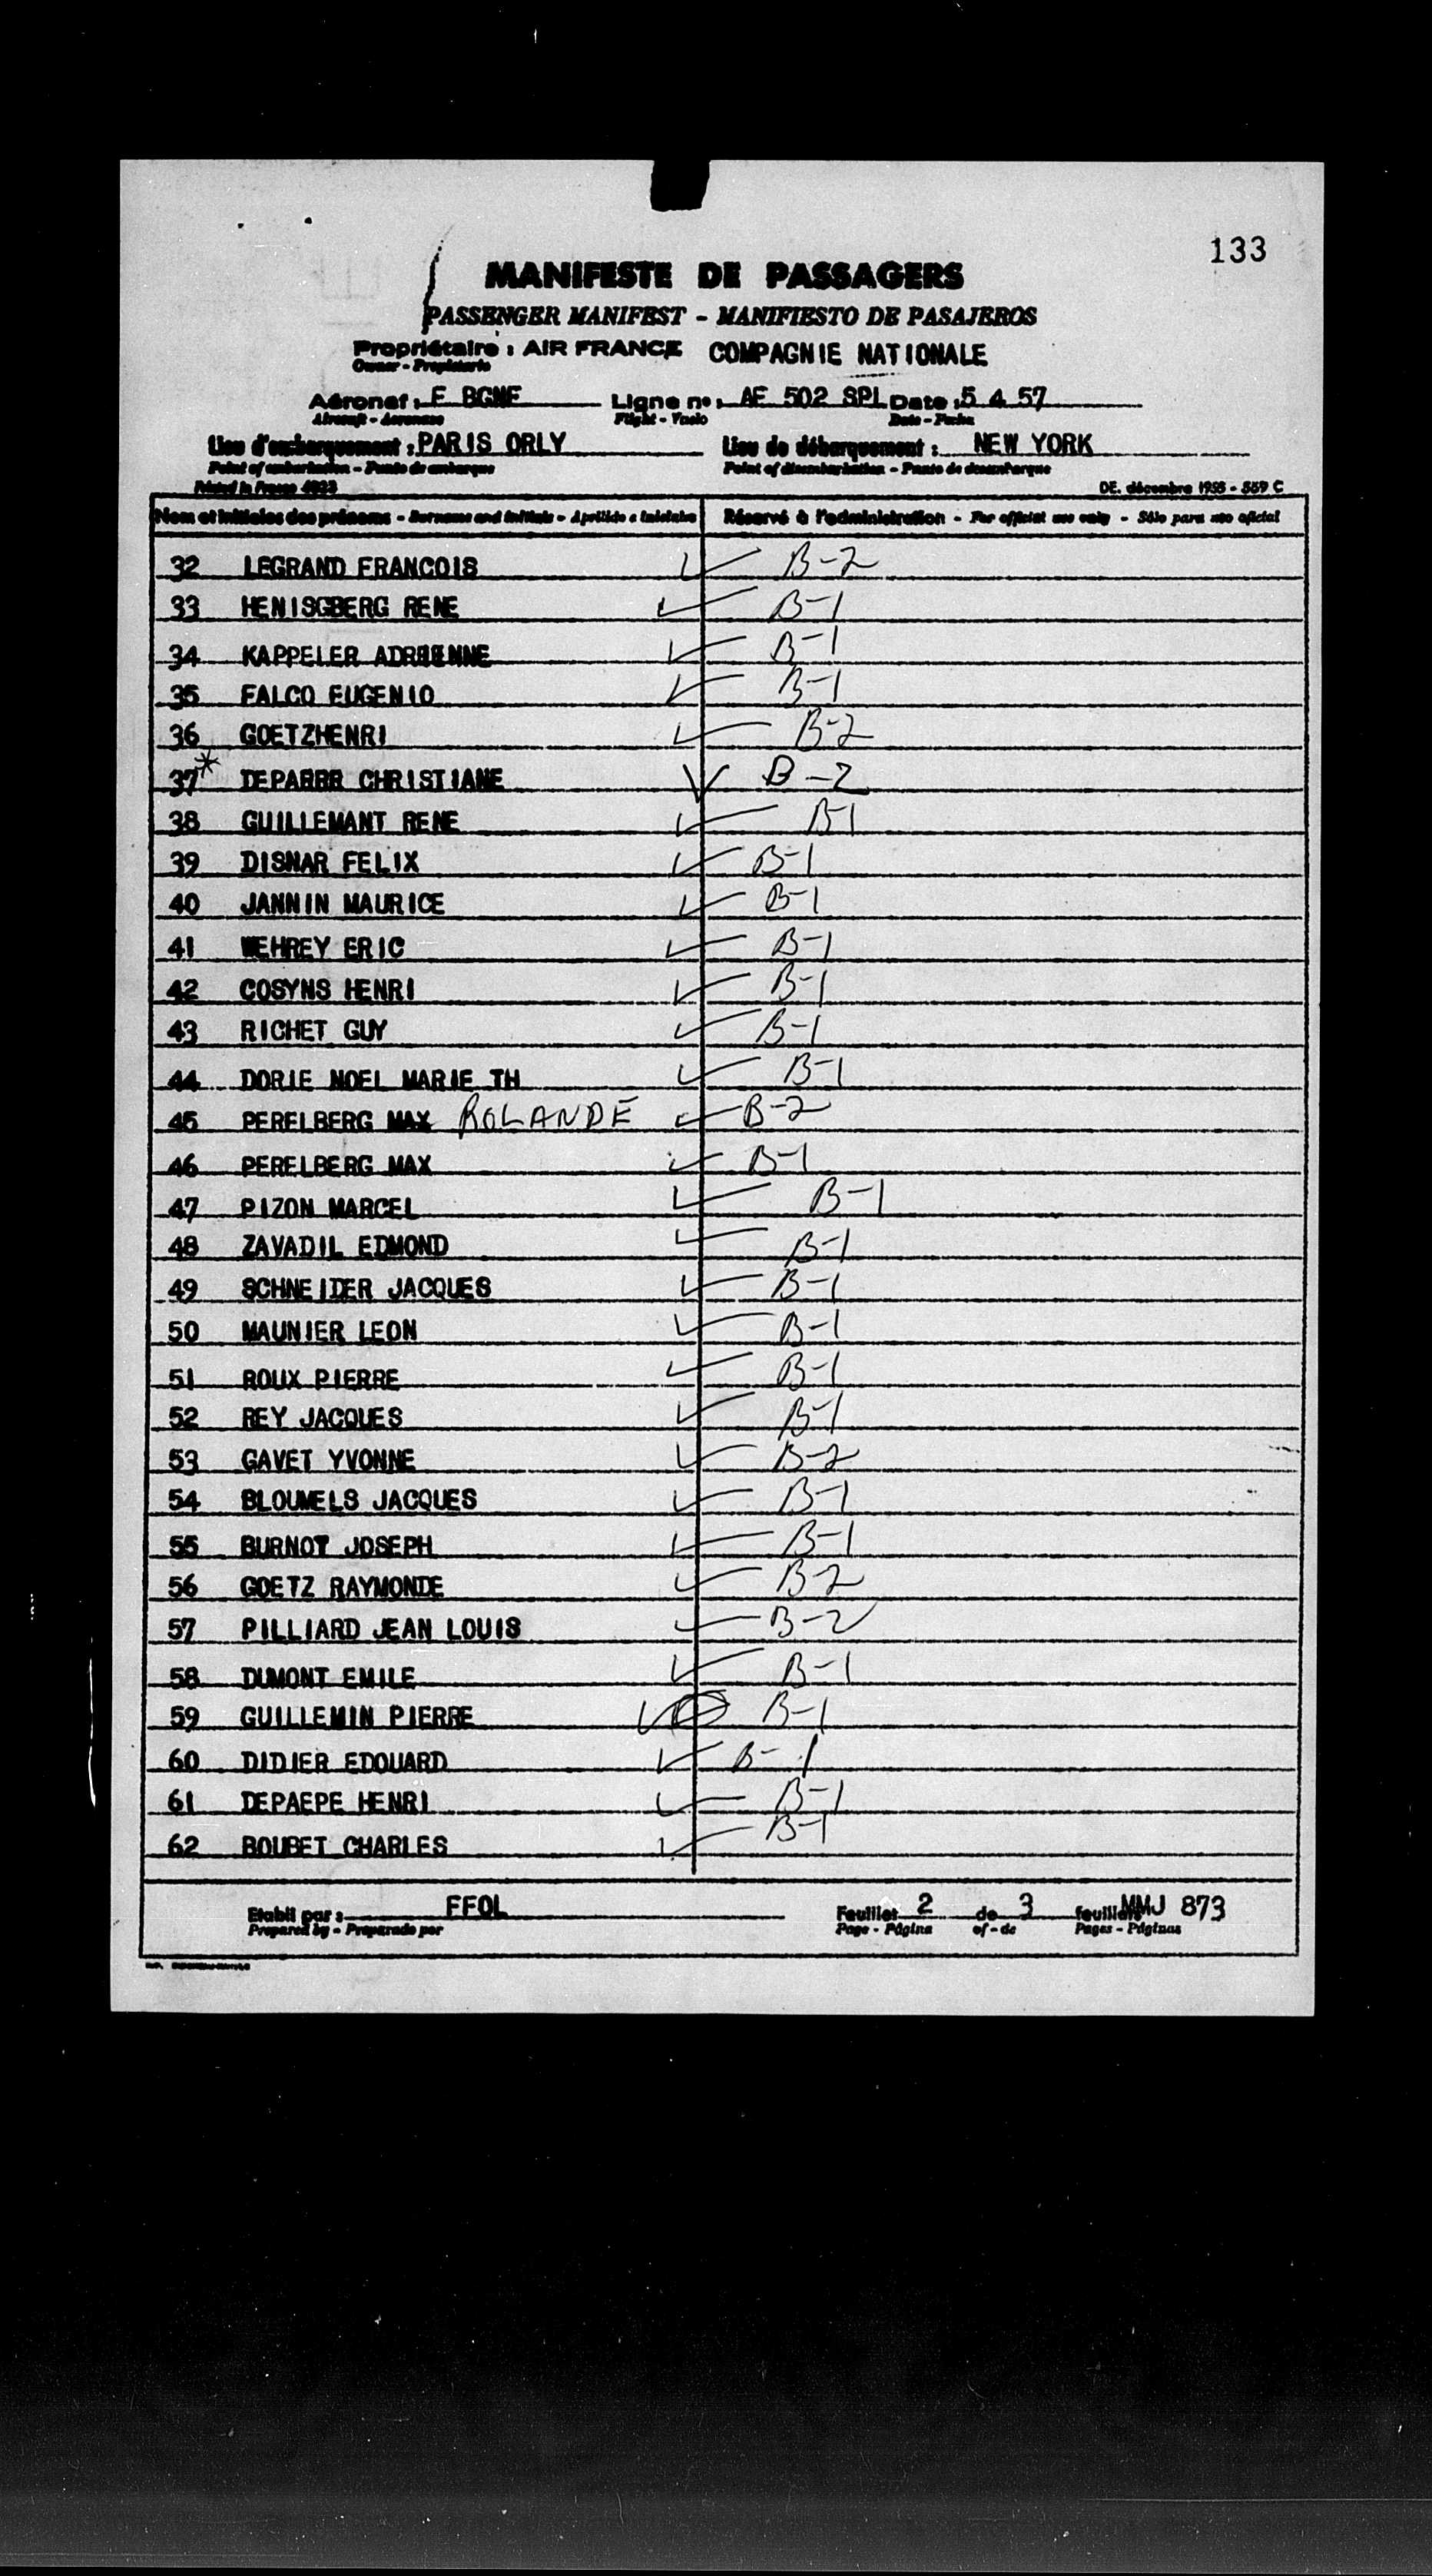 133
MANIFESTE DE PASSAGERS
PASSENGER MANIFEST - MANIFIESTO DE PASAJEROS
Propriétaire : AIR FRANCE COMPAGNIE NATIONALE
Owner - Propietario
Aéronef : F BGNF Ligne n° : AF 502 SPL Date : 5 4 57
Aircraft - Aeronave Flight - Vuelo Date - Fecha
Lieu d'embarquement : PARIS ORLY Lieu de débarquement : NEW YORK
Point of embarkation - Punto de embarque Point of disembarkation - Punto de desembarque
Printed in France DE. décembre 1955 - 559 C
Nom et initiales des prénoms - Surname and initials - Apellido e iniciales Réservé à l'administration - For official use only - Sólo para uso oficial
32 LEGRAND FRANCOIS ✓ B-2
33 HENISGBERG RENE ✓ B-1
34 KAPPELER ADRIENNE ✓ B-1
35 FALCO EUGENIO ✓ B-1
36 GOETZHENRI ✓ B-2
37* DEPARRR CHRISTIANE ✓ B-2
38 GUILLEMANT RENE ✓ B-1
39 DISNAR FELIX ✓ B-1
40 JANNIN MAURICE ✓ B-1
41 WEHREY ERIC ✓ B-1
42 COSYNS HENRI ✓ B-1
43 RICHET GUY ✓ B-1
44 DORIE NOEL MARIE TH ✓ B-1
45 PERELBERG MAX ROLANDE ✓ B-2
46 PERELBERG MAX ✓ B-1
47 PIZON MARCEL ✓ B-1
48 ZAVADIL EDMOND ✓ B-1
49 SCHNEIDER JACQUES ✓ B-1
50 MAUNIER LEON ✓ B-1
51 ROUX PIERRE ✓ B-1
52 REY JACQUES ✓ B-1
53 GAVET YVONNE ✓ B-2
54 BLOUMELS JACQUES ✓ B-1
55 BURNOT JOSEPH ✓ B-1
56 GOETZ RAYMONDE ✓ B-2
57 PILLIARD JEAN LOUIS ✓ B-2
58 DUMONT EMILE ✓ B-1
59 GUILLEMIN PIERRE ✓ B-1
60 DIDIER EDOUARD ✓ B-1
61 DEPAEPE HENRI ✓ B-1
62 BOUBET CHARLES ✓ B-1
Etabli par : FFOL Feuillet 2 de 3 feuillets MMJ 873
Prepared by - Preparado por Page - Página of - de Pages - Páginas